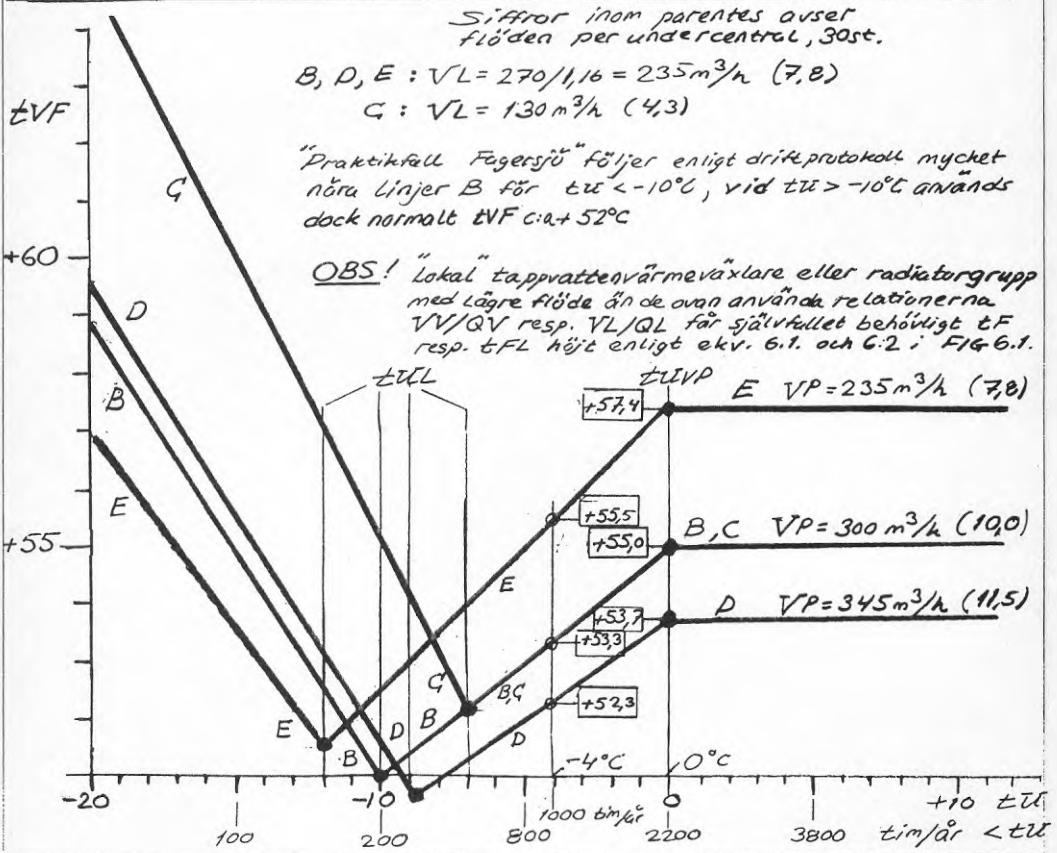 Siffror inom parentes avser
flöden per undercentral, 30st.
B, D, E : VL = 270/1,16 = 235 m³/h (7,8)
C : VL = 130 m³/h (4,3)
tVF
"Praktikfall Fagersjö" följer enligt driftprotokoll mycket
nära linjer B för tU < -10°C, vid tU > -10°C används
dock normalt tVF c:a + 52°C
C
+60
OBS! "Lokal" tappvattenvärmeväxlare eller radiatorgrupp
med lägre flöde än de ovan använda relationerna
VV/QV resp. VL/QL får självfallet behövligt tF
resp. tFL höjt enligt ekv. 6.1. och 6.2 i FIG 6.1.
D
tUL
tUVP
E VP = 235 m³/h (7,8)
+57,4
B
E
+55,5
+55
+55,0
B, C VP = 300 m³/h (10,0)
E
+53,7
D VP = 345 m³/h (11,5)
+53,3
C
B,C
+52,3
E
B
D
B
D
-4°C
0°C
-20
-10
0
+10 tU
1000 tim/år
100
200
800
2200
3800
tim/år < tU